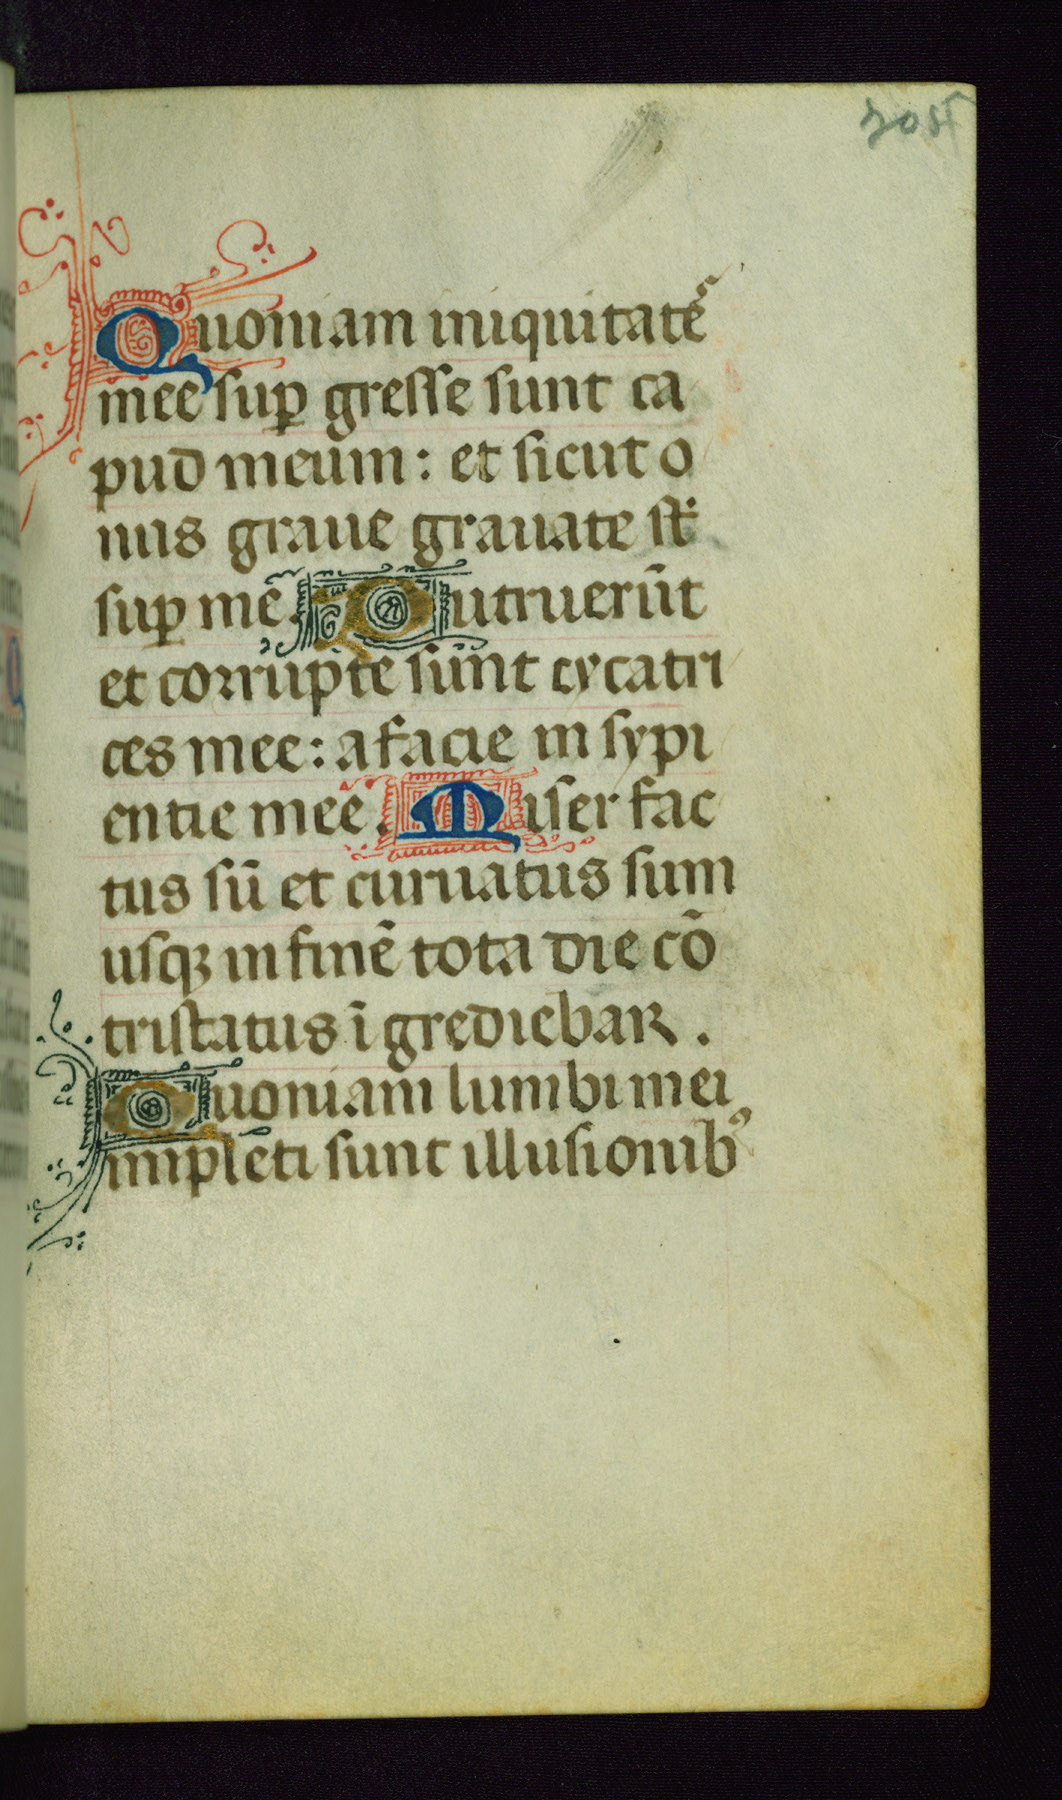 Quoniam iniquitatēs
mee suꝑ gresse sunt ca
pud meum: et sicut o
nus graue grauate st̄
suꝑ mē. Putruerūt
et corrupte sunt cycatri
ces mee: a facie in sypi
entie mee. Miser fac
tus sū et curuatus sum
usqꝫ in finē tota die cō
tristatus īgrediebar.
Quoniam lumbi mei
impleti sunt illusionibꝰ